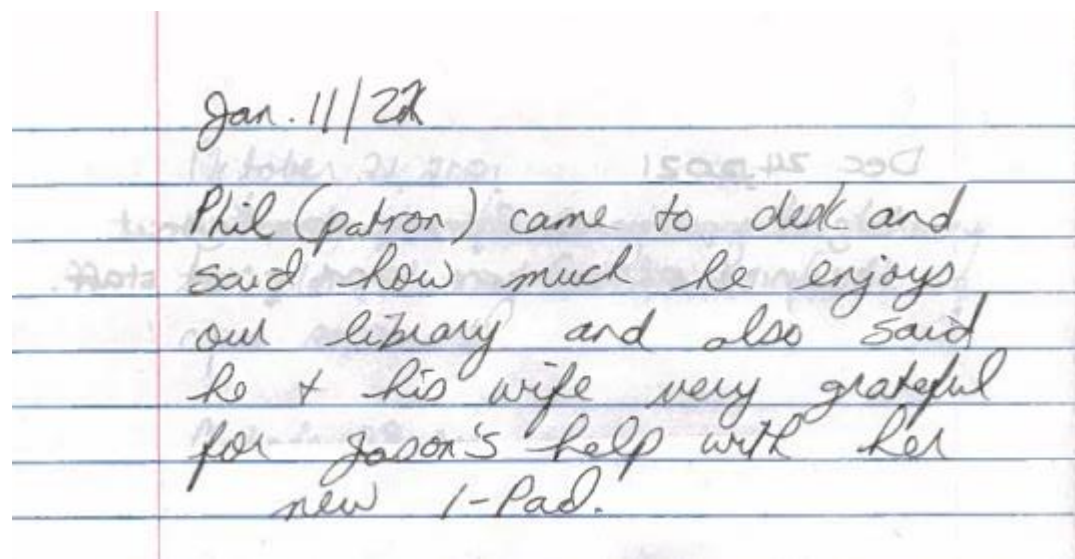 Jan. 11/22
Phil (patron) came to desk and
said how much he enjoys
our library and also said
he + his wife very grateful
for Jason's help with her
new I-Pad.
Dec 24, 2021
staff.